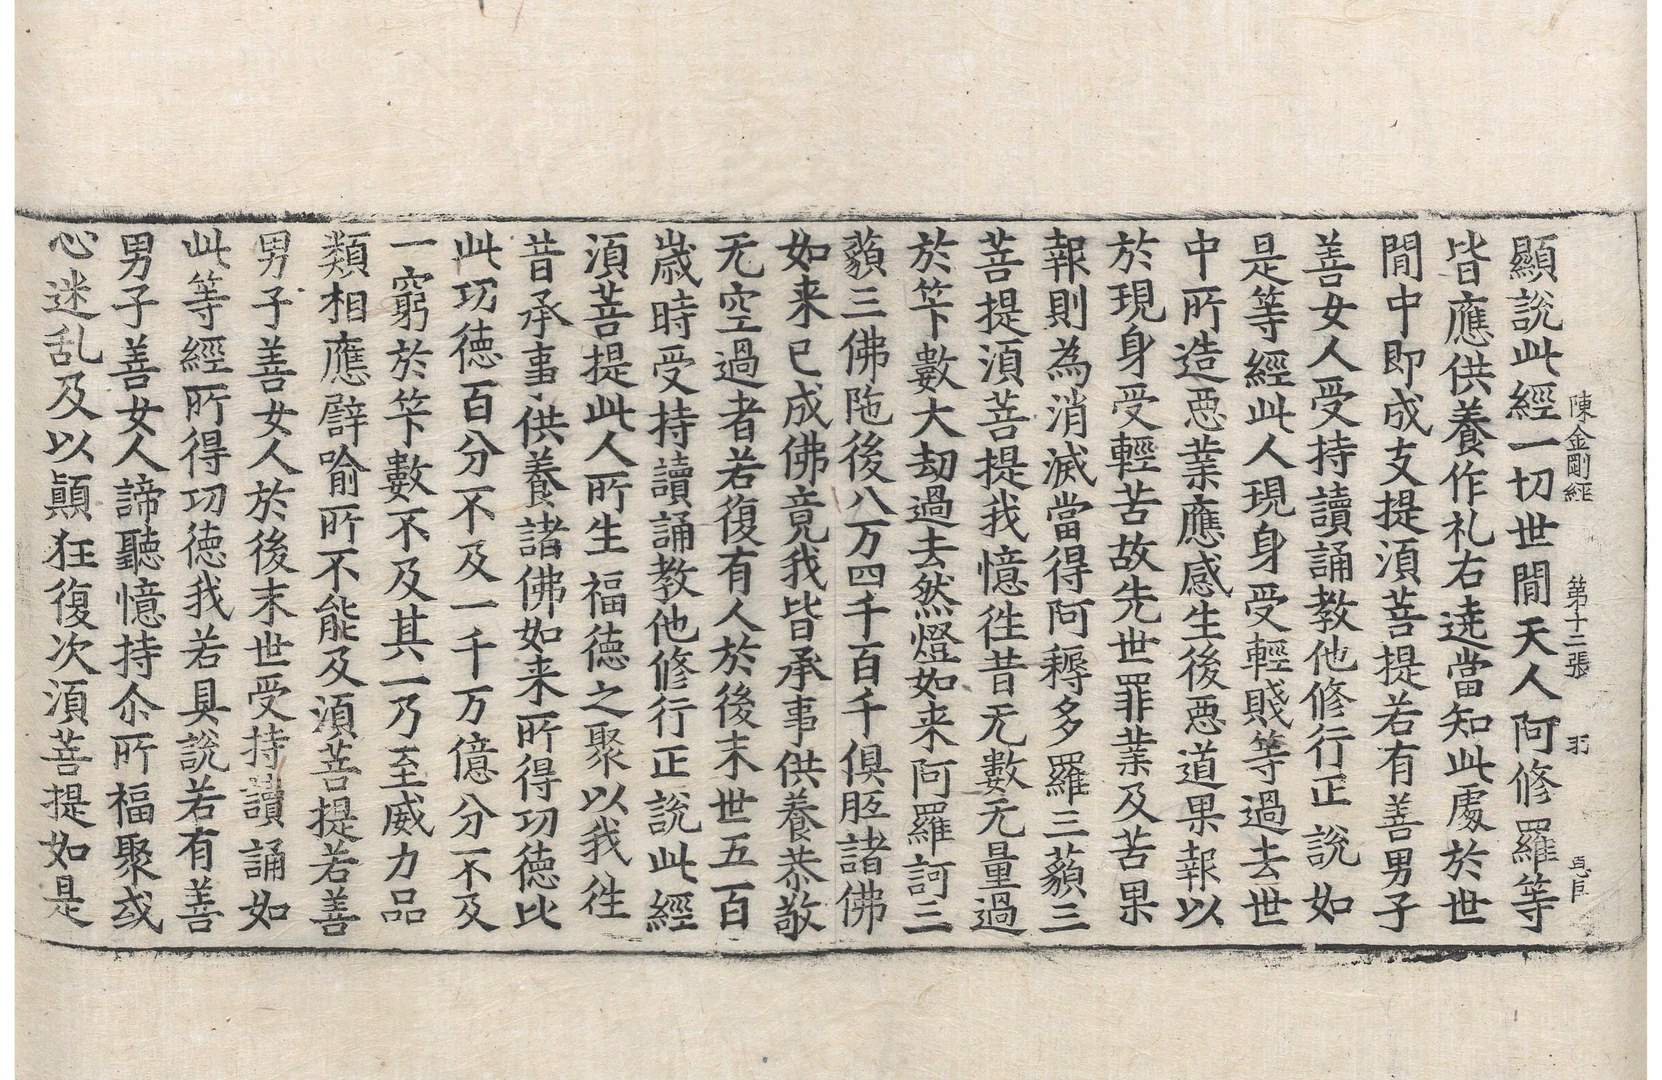 陳金剛經　第十二張　羽
顯說此經一切世閒天人阿修羅等
皆應供養作礼右遶當知此處於世
閒中即成支提須菩提若有善男子
善女人受持讀誦教他修行正說如
是等經此人現身受輕賤等過去世
中所造惡業應感生後惡道果報以
於現身受輕苦故先世罪業及苦果
報則為消滅當得阿耨多羅三藐三
菩提須菩提我憶往昔无數无量過
於筭數大劫過去然燈如来阿羅訶三
藐三佛陁後八万四千百千俱胝諸佛
如来已成佛竟我皆承事供養恭敬
无空過者若復有人於後末世五百
歲時受持讀誦教他修行正說此經
須菩提此人所生福德之聚以我往
昔承事供養諸佛如来所得功德比
此功德百分不及一千万億分不及
一窮於筭數不及其一乃至威力品
類相應譬喻所不能及須菩提若善
男子善女人於後末世受持讀誦如
此等經所得功德我若具說若有善
男子善女人諦聽憶持尒所福聚或
心迷乱及以顛狂復次須菩提如是